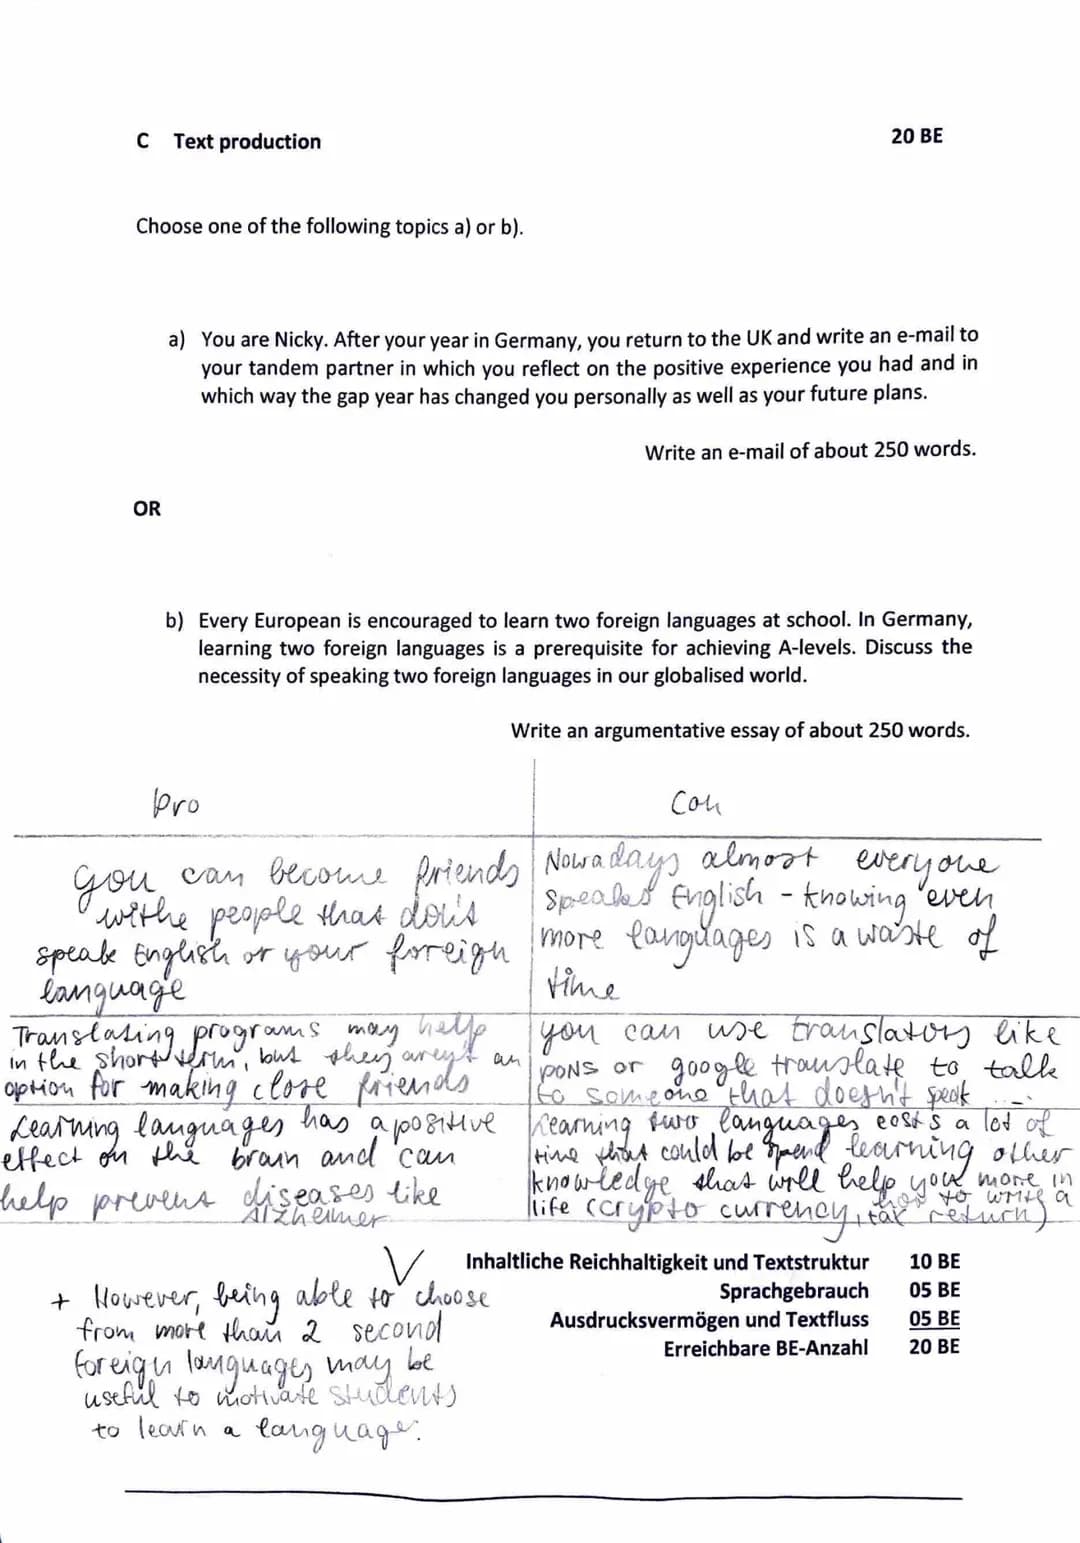 C Text production 20 BE
Choose one of the following topics a) or b).
a) You are Nicky. After your year in Germany, you return to the UK and write an e-mail to
your tandem partner in which you reflect on the positive experience you had and in
which way the gap year has changed you personally as well as your future plans.
Write an e-mail of about 250 words.
OR
b) Every European is encouraged to learn two foreign languages at school. In Germany,
learning two foreign languages is a prerequisite for achieving A-levels. Discuss the
necessity of speaking two foreign languages in our globalised world.
Write an argumentative essay of about 250 words.
Pro
Con
you can become friends
withe people that don't
speak English or your foreign
language
Nowadays almost everyone
speaks English - knowing even
more languages is a waste of
time
Translating programs may help
in the short term, but they aren't an
option for making close friends
you can use translators like
PONS or google translate to talk
to someone that doesn't speak ....
Learning languages has a positive
effect on the brain and can
help prevent diseases like
Alzheimer
Learning two languages costs a lot of
time that could be spend learning other
knowledge that will help you more in
life (crypto currency, how to write a
tax return)
Inhaltliche Reichhaltigkeit und Textstruktur 10 BE
Sprachgebrauch 05 BE
Ausdrucksvermögen und Textfluss 05 BE
Erreichbare BE-Anzahl 20 BE
+ However, being able to choose
from more than 2 second
foreign languages may be
useful to motivate students
to learn a language.